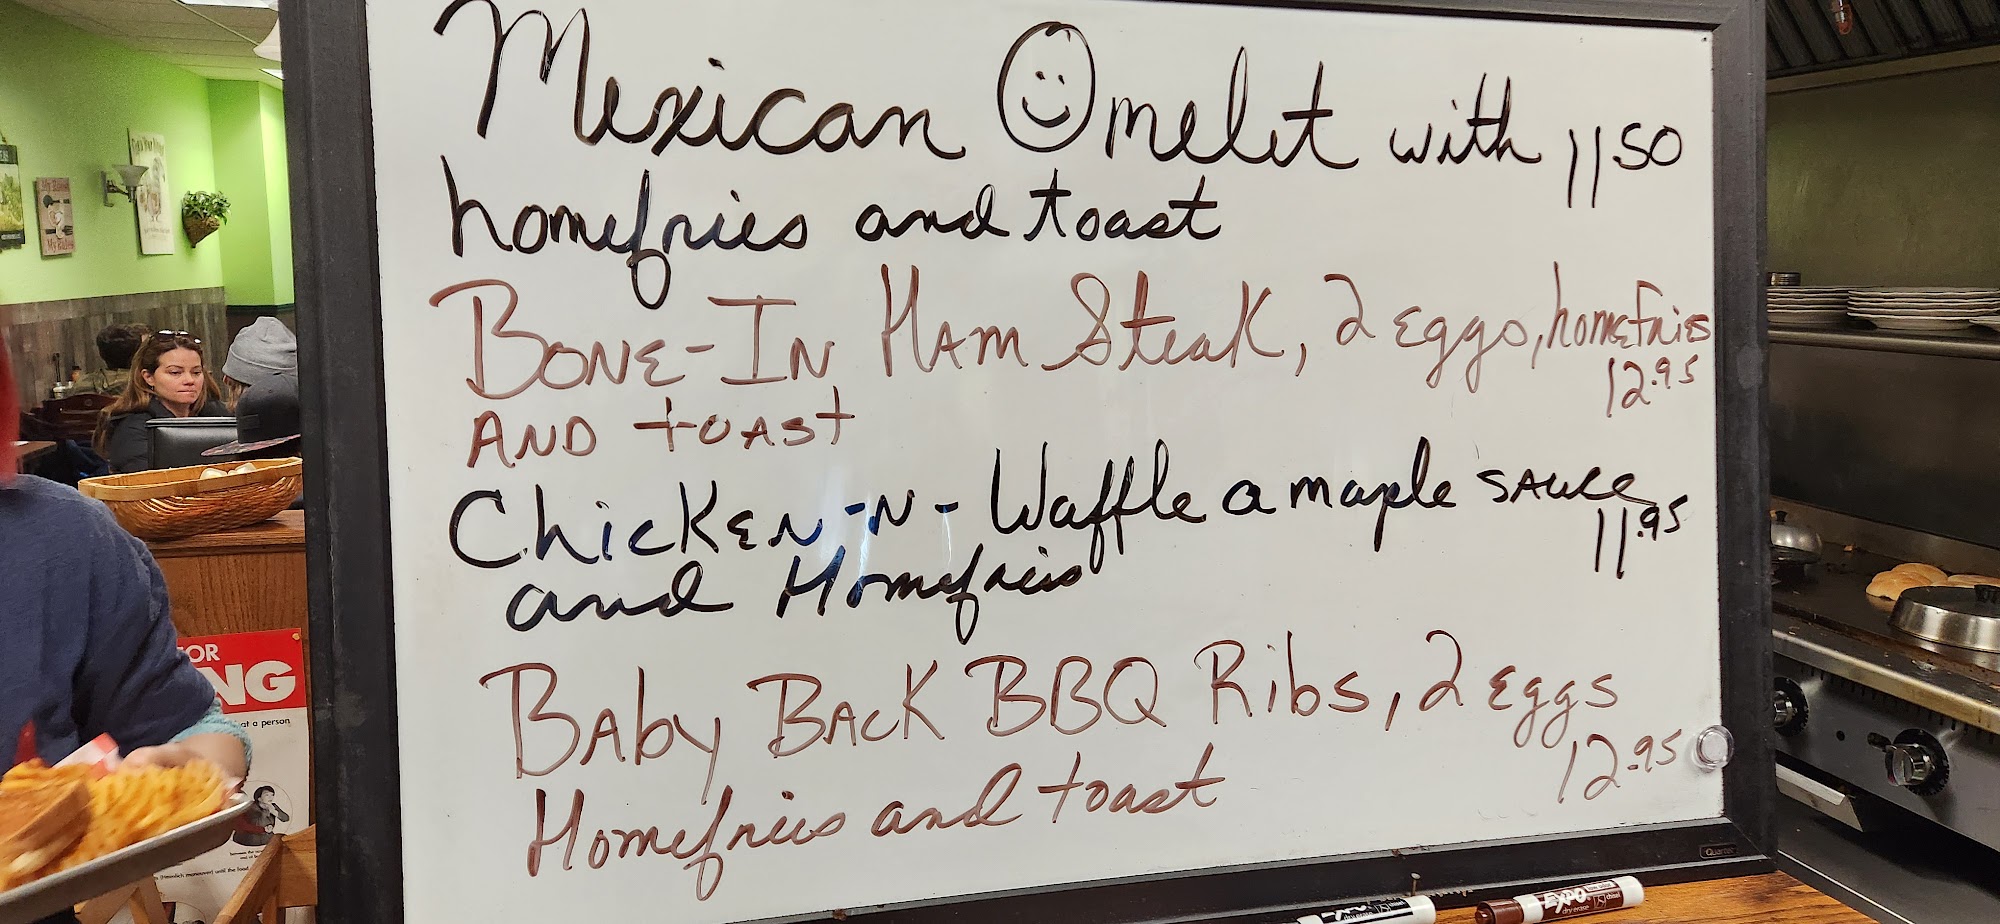 Mexican Omelet with 11.50
homefries and toast
Bone-In Ham Steak, 2 eggs, homefries
12.95
and toast
Chicken-N-Waffle a maple sauce
11.95
and Homefries
Baby Back BBQ Ribs, 2 eggs
12.95
Homefries and toast
Quartet
EXPO
dry erase
EXPO
dry erase
OR
NG
at a person